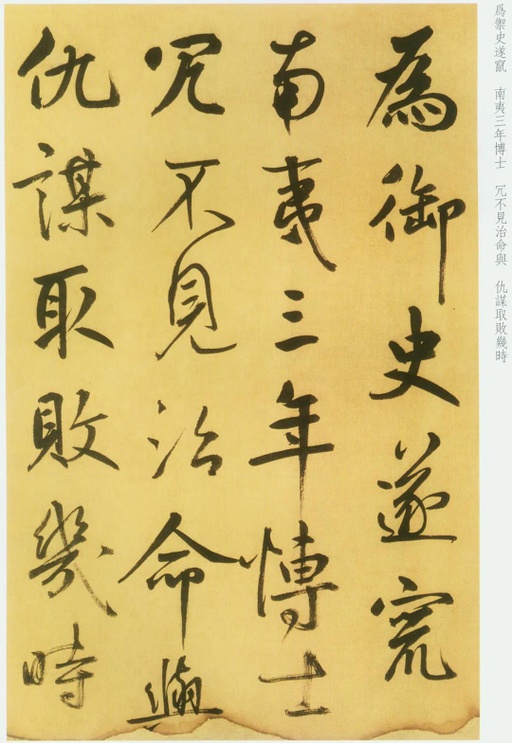 爲禦史遂竄　南夷三年博士　冗不見治命與　仇謀取敗幾時
為御史遂竄
南夷三年博士
冗不見治命與
仇謀取敗幾時